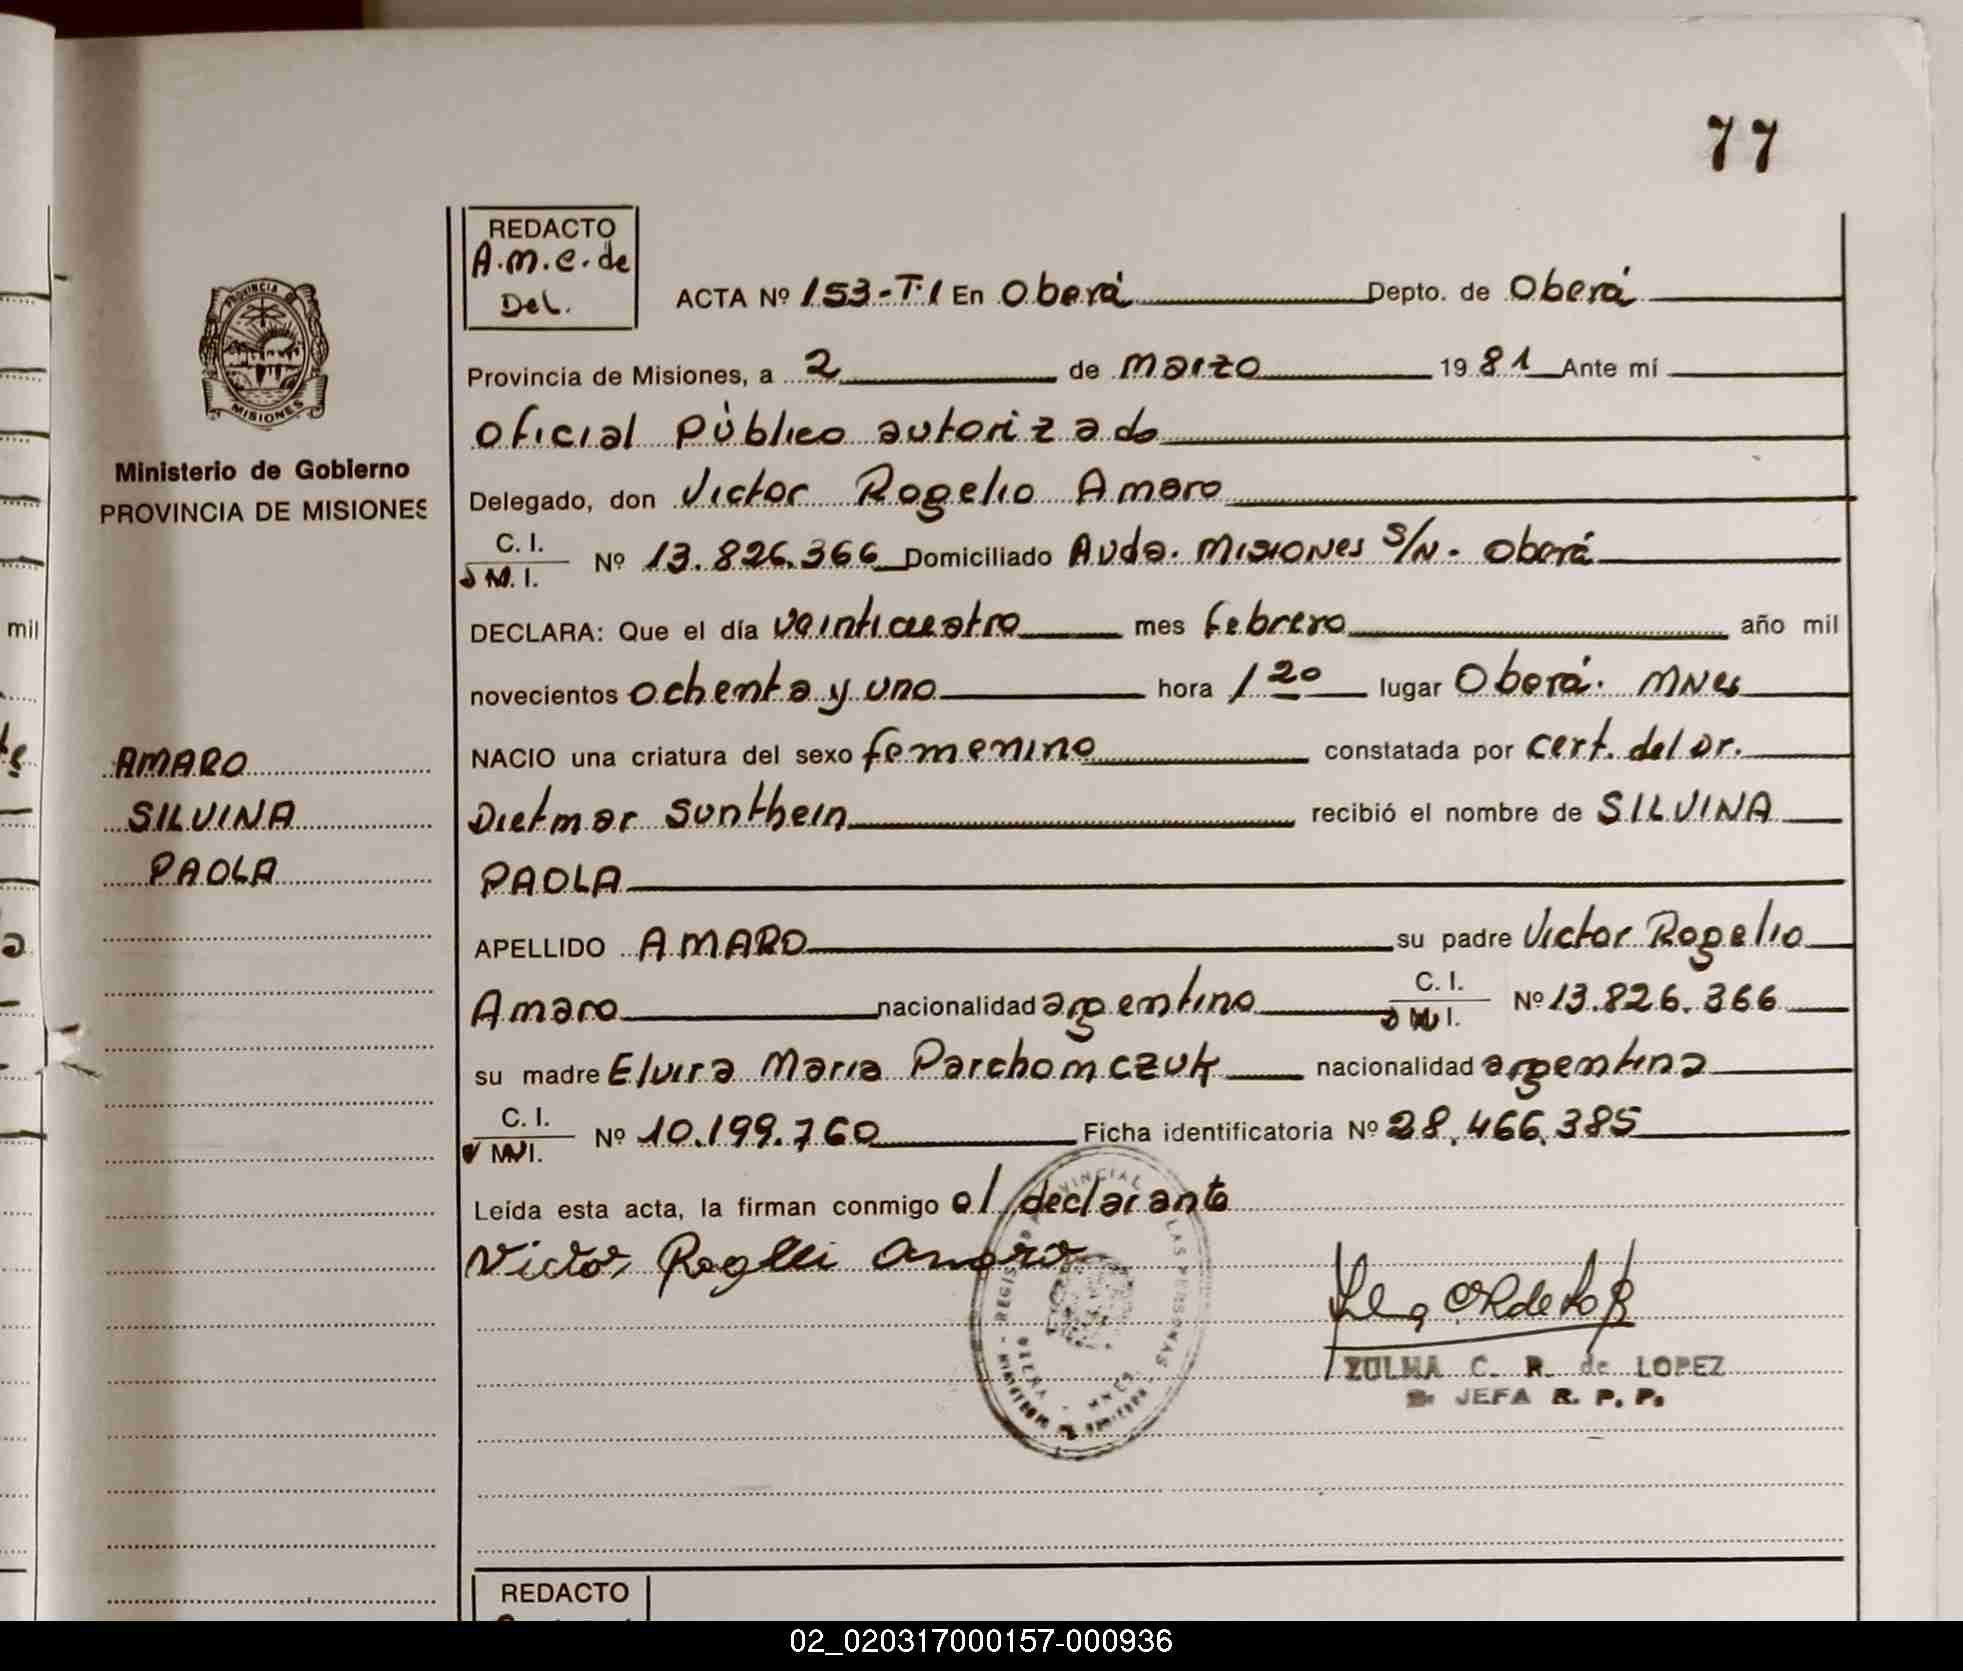 77
REDACTO
A.M.C. de
Del.
ACTA Nº 153-T.I En Oberá Depto. de Oberá
Provincia de Misiones, a 2 de marzo 1981 Ante mí
oficial Público autorizado
Delegado, don Victor Rogelio Amaro
C. I.
ó M. I. Nº 13.826.366 Domiciliado Avda. Misiones S/N. Oberá
DECLARA: Que el día veinticuatro mes febrero año mil
novecientos ochenta y uno hora 1 20 lugar Oberá. Mnes
NACIO una criatura del sexo femenino constatada por cert. del Dr.
Dietmar Sonthein recibió el nombre de SILVINA
PAOLA
APELLIDO AMARO su padre Victor Rogelio
Amaro nacionalidad argentino C. I. Nº 13.826.366
su madre Elvira Maria Parchomczuk nacionalidad argentina
C. I. Nº 10.199.760 Ficha identificatoria Nº 28.466.385
Leída esta acta, la firman conmigo el declarante
Victor Rogelio Amaro
ZULMA C. R. de LOPEZ
JEFA R. P. P.
PROVINCIA DE
MISIONES
Ministerio de Gobierno
PROVINCIA DE MISIONES
AMARO
SILVINA
PAOLA
mil
REDACTO
02_020317000157-000936